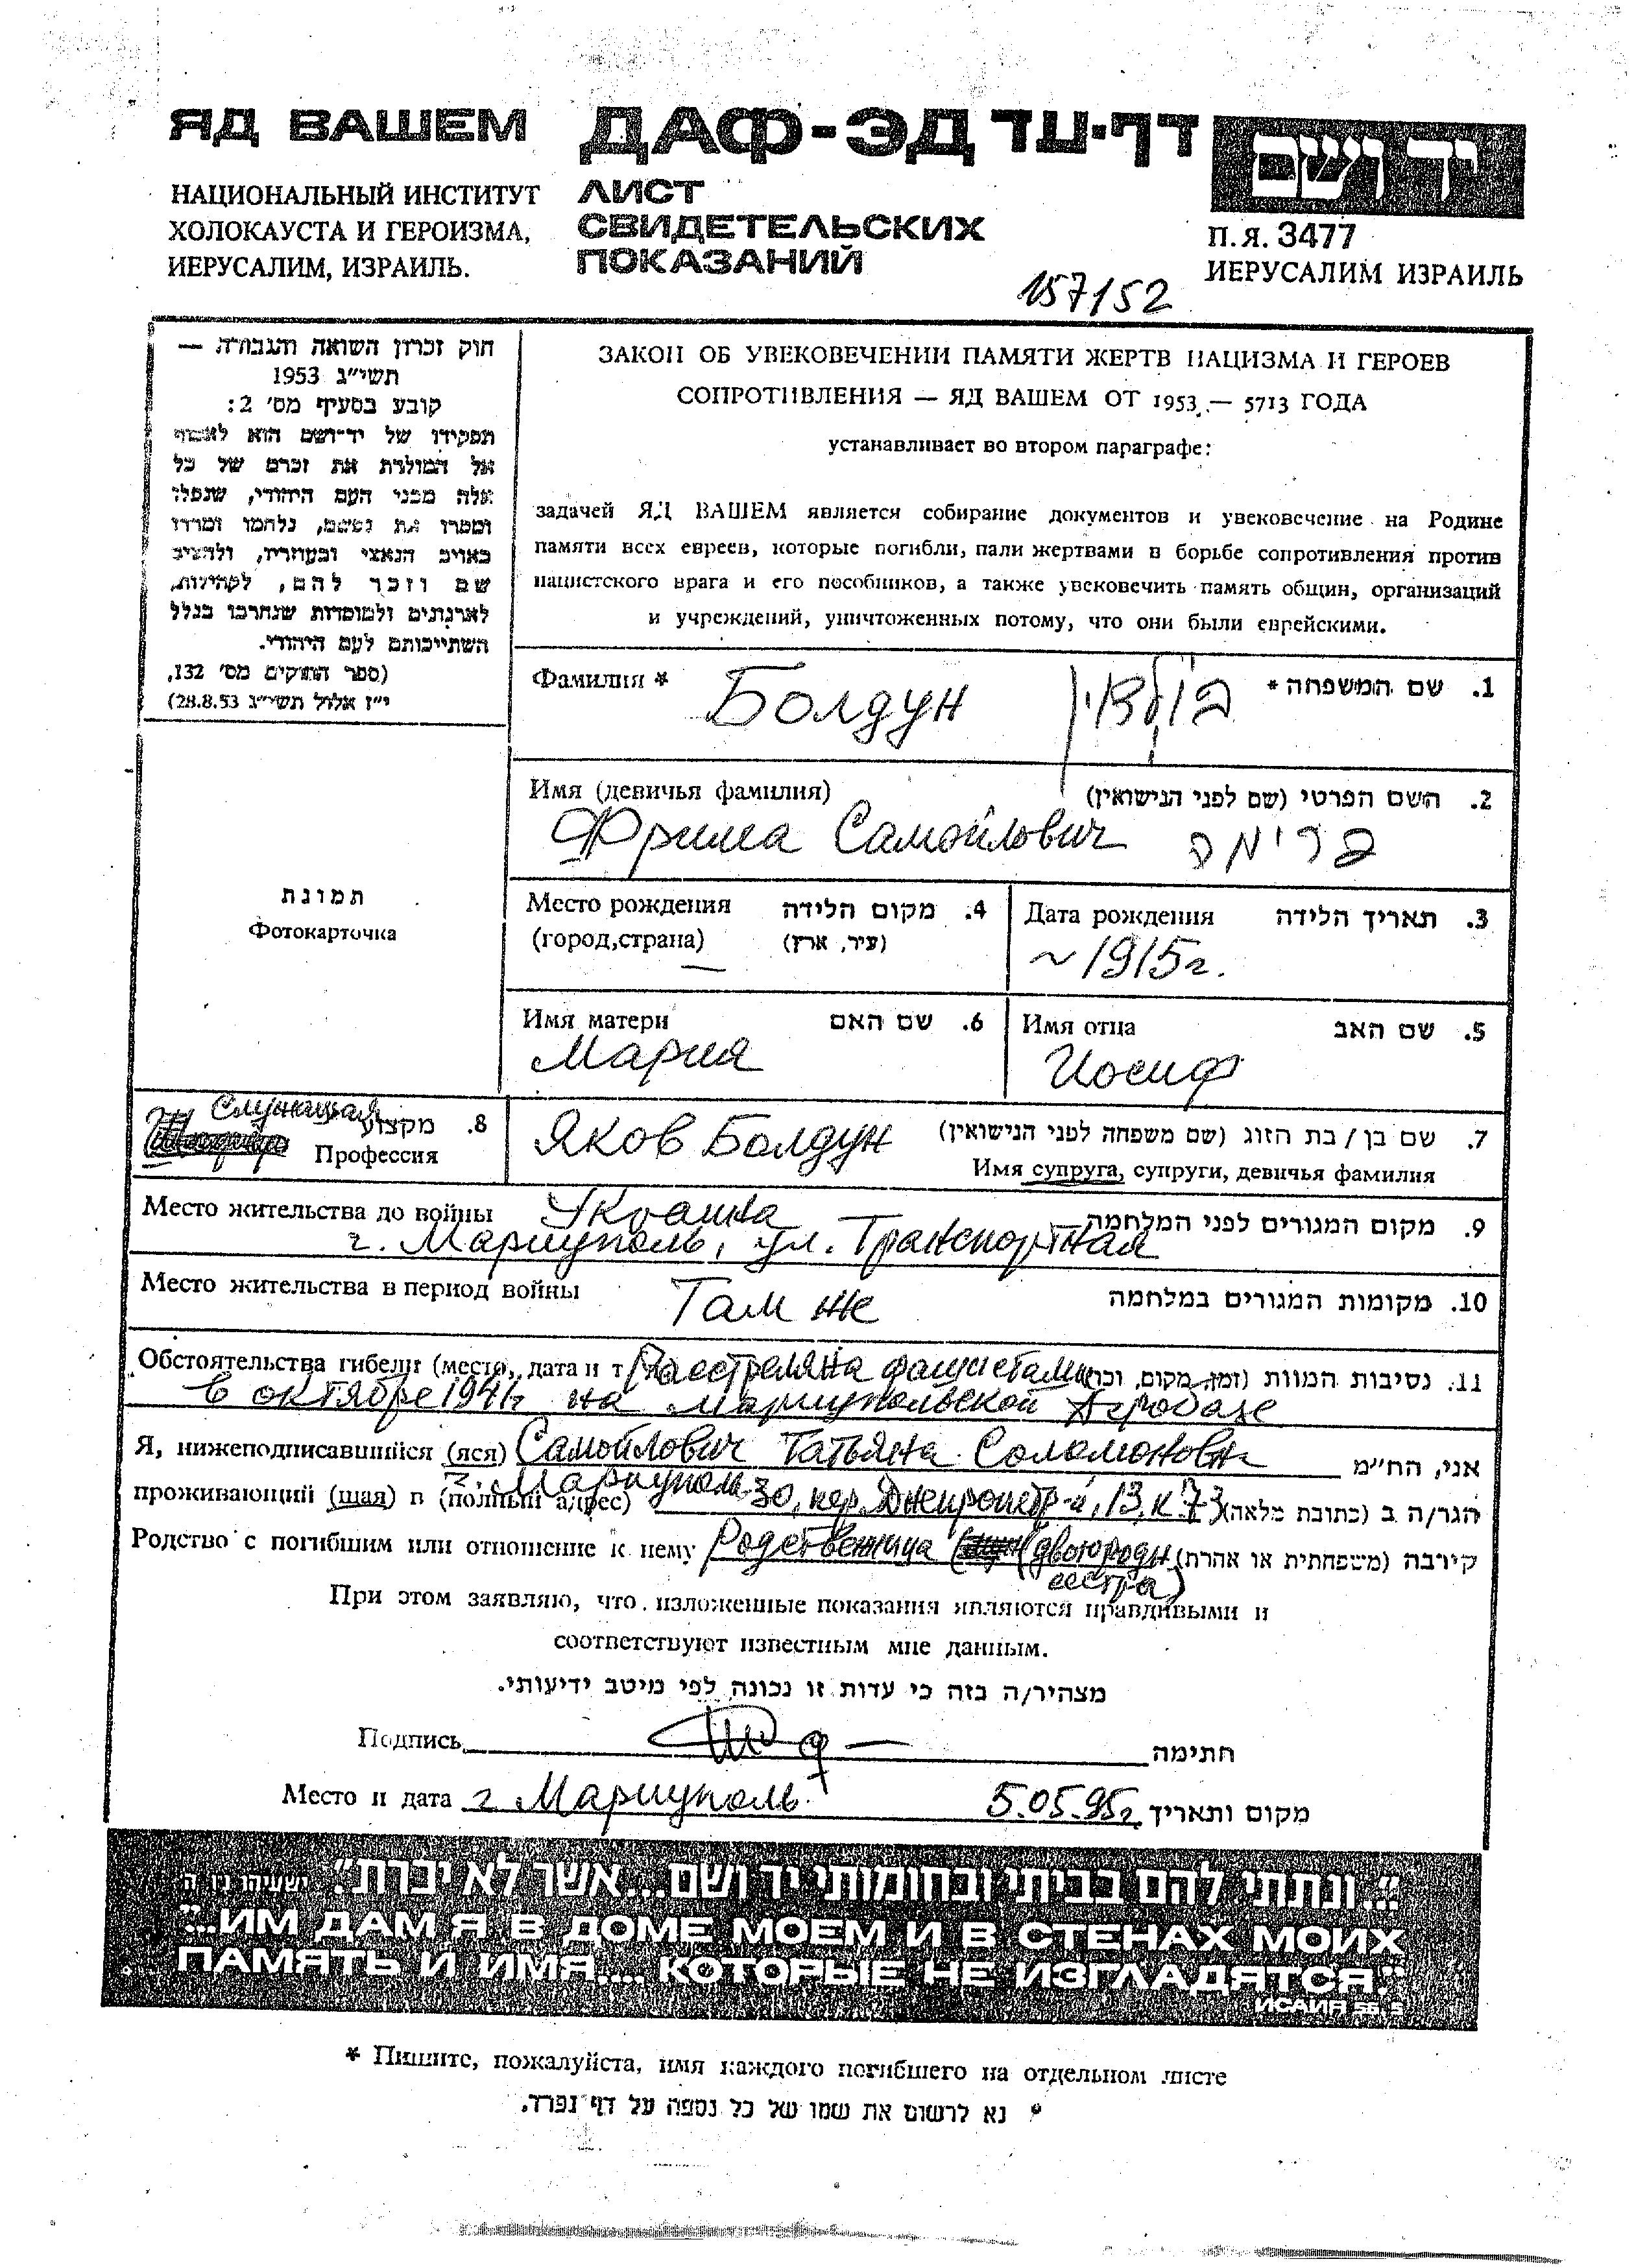 ЯД ВАШЕМ ДАФ-ЭД דף-עד יד ושם
НАЦИОНАЛЬНЫЙ ИНСТИТУТ
ХОЛОКАУСТА И ГЕРОИЗМА,
ИЕРУСАЛИМ, ИЗРАИЛЬ.
ЛИСТ
СВИДЕТЕЛЬСКИХ
ПОКАЗАНИЙ
П.Я. 3477
ИЕРУСАЛИМ ИЗРАИЛЬ
157152
חוק זכרון השואה והגבורה —
תשי״ג 1953
קובע בסעיף מס׳ 2:
תפקידו של יד-ושם הוא לאסוף
אל המולדת את זכרם של כל
אלה מבני העם היהודי, שנפלו
ומסרו את נפשם, נלחמו ומרדו
באויב הנאצי ובעוזריו, ולהציב
שם וזכר להם, לקהילות,
לארגונים ולמוסדות שנחרבו בגלל
השתייכותם לעם היהודי.
(ספר החוקים מס׳ 132,
י״ז אלול תשי״ג 28.8.53)
ЗАКОН ОБ УВЕКОВЕЧЕНИИ ПАМЯТИ ЖЕРТВ НАЦИЗМА И ГЕРОЕВ
СОПРОТИВЛЕНИЯ — ЯД ВАШЕМ ОТ 1953 — 5713 ГОДА
устанавливает во втором параграфе:
задачей ЯД ВАШЕМ является собирание документов и увековечение на Родине
памяти всех евреев, которые погибли, пали жертвами в борьбе сопротивления против
нацистского врага и его пособников, а также увековечить память общин, организаций
и учреждений, уничтоженных потому, что они были еврейскими.
Фамилия * Болдун בולדון 1. שם המשפחה *
Имя (девичья фамилия) 2. השם הפרטי (שם לפני הנישואין)
Фрима Самойлович פרימה
תמונת
Фотокарточка
Место рождения 4. מקום הלידה
(город,страна) (עיר, ארץ)
—
Дата рождения 3. תאריך הלידה
~1915г.
Имя матери 6. שם האם
Мария
Имя отца 5. שם האב
Иосиф
Служащая 8. מקצוע
Профессия
Яков Болдун 7. שם בן / בת הזוג (שם משפחה לפני הנישואין)
Имя супруга, супруги, девичья фамилия
Место жительства до войны Украина 9. מקום המגורים לפני המלחמה
г. Мариуполь, ул. Транспортная
Место жительства в период войны Там же 10. מקומות המגורים במלחמה
Обстоятельства гибели (место, дата и т Расстреляна фашистами 11. נסיבות המוות (זמן, מקום, וכו
в октябре 1941г на мариупольской Агробазе
Я, нижеподписавшийся (яся) Самойлович Татьяна Соломоновна אני, הח״מ
проживающий (щая) в (полный адрес) г. Мариуполь-30, пер. Днепропетр-й, 13, к 73 הגר/ה ב (כתובת מלאה)
Родство с погибшим или отношение к нему Родственница (двоюродн קירבה (משפחתית או אחרת)
сестра)
При этом заявляю, что изложенные показания являются правдивыми и
соответствуют известным мне данным.
מצהיר/ה בזה כי עדות זו נכונה לפי מיטב ידיעותי.
Подпись חתימה
Место и дата г Мариуполь 5.05.95г. מקום ותאריך
"...ונתתי להם בביתי ובחומותי יד ושם...אשר לא יכרת." ישעיהו נו ה
"...ИМ ДАМ Я В ДОМЕ МОЕМ И В СТЕНАХ МОИХ
ПАМЯТЬ И ИМЯ.... КОТОРЫЕ НЕ ИЗГЛАДЯТСЯ."
ИСАИЯ 56, 5
* Пишите, пожалуйста, имя каждого погибшего на отдельном листе
* נא לרשום את שמו של כל נספה על דף נפרד.